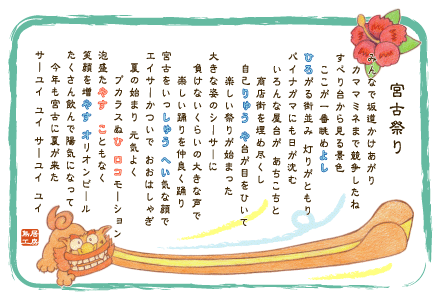 宮古祭り
みんなで坂道かけあがり
カママミネまで競争したね
すべり台から見る景色
ここが一番眺めよし
ひろがる街並み 灯りがともり
パイナガマにも日が沈む
いろんな屋台が あちこちと
商店街を埋め尽くし
自己りゅう や台が目をひいて
楽しい祭りが始まった
大きな姿のシーサーに
負けないくらいの大きな声で
楽しい踊りを仲良く踊り
宮古をいっしゅう へい気な顔で
エイサーかついで おおはしゃぎ
夏の始まり 元気よく
ブカラスぬひ ロコモーション
泡盛たなく やす こともなく
笑顔を増やす オリオンビール
たくさん飲んで陽気になって
今年も宮古に夏が来た
サーユイ ユイ サーユイ ユイ